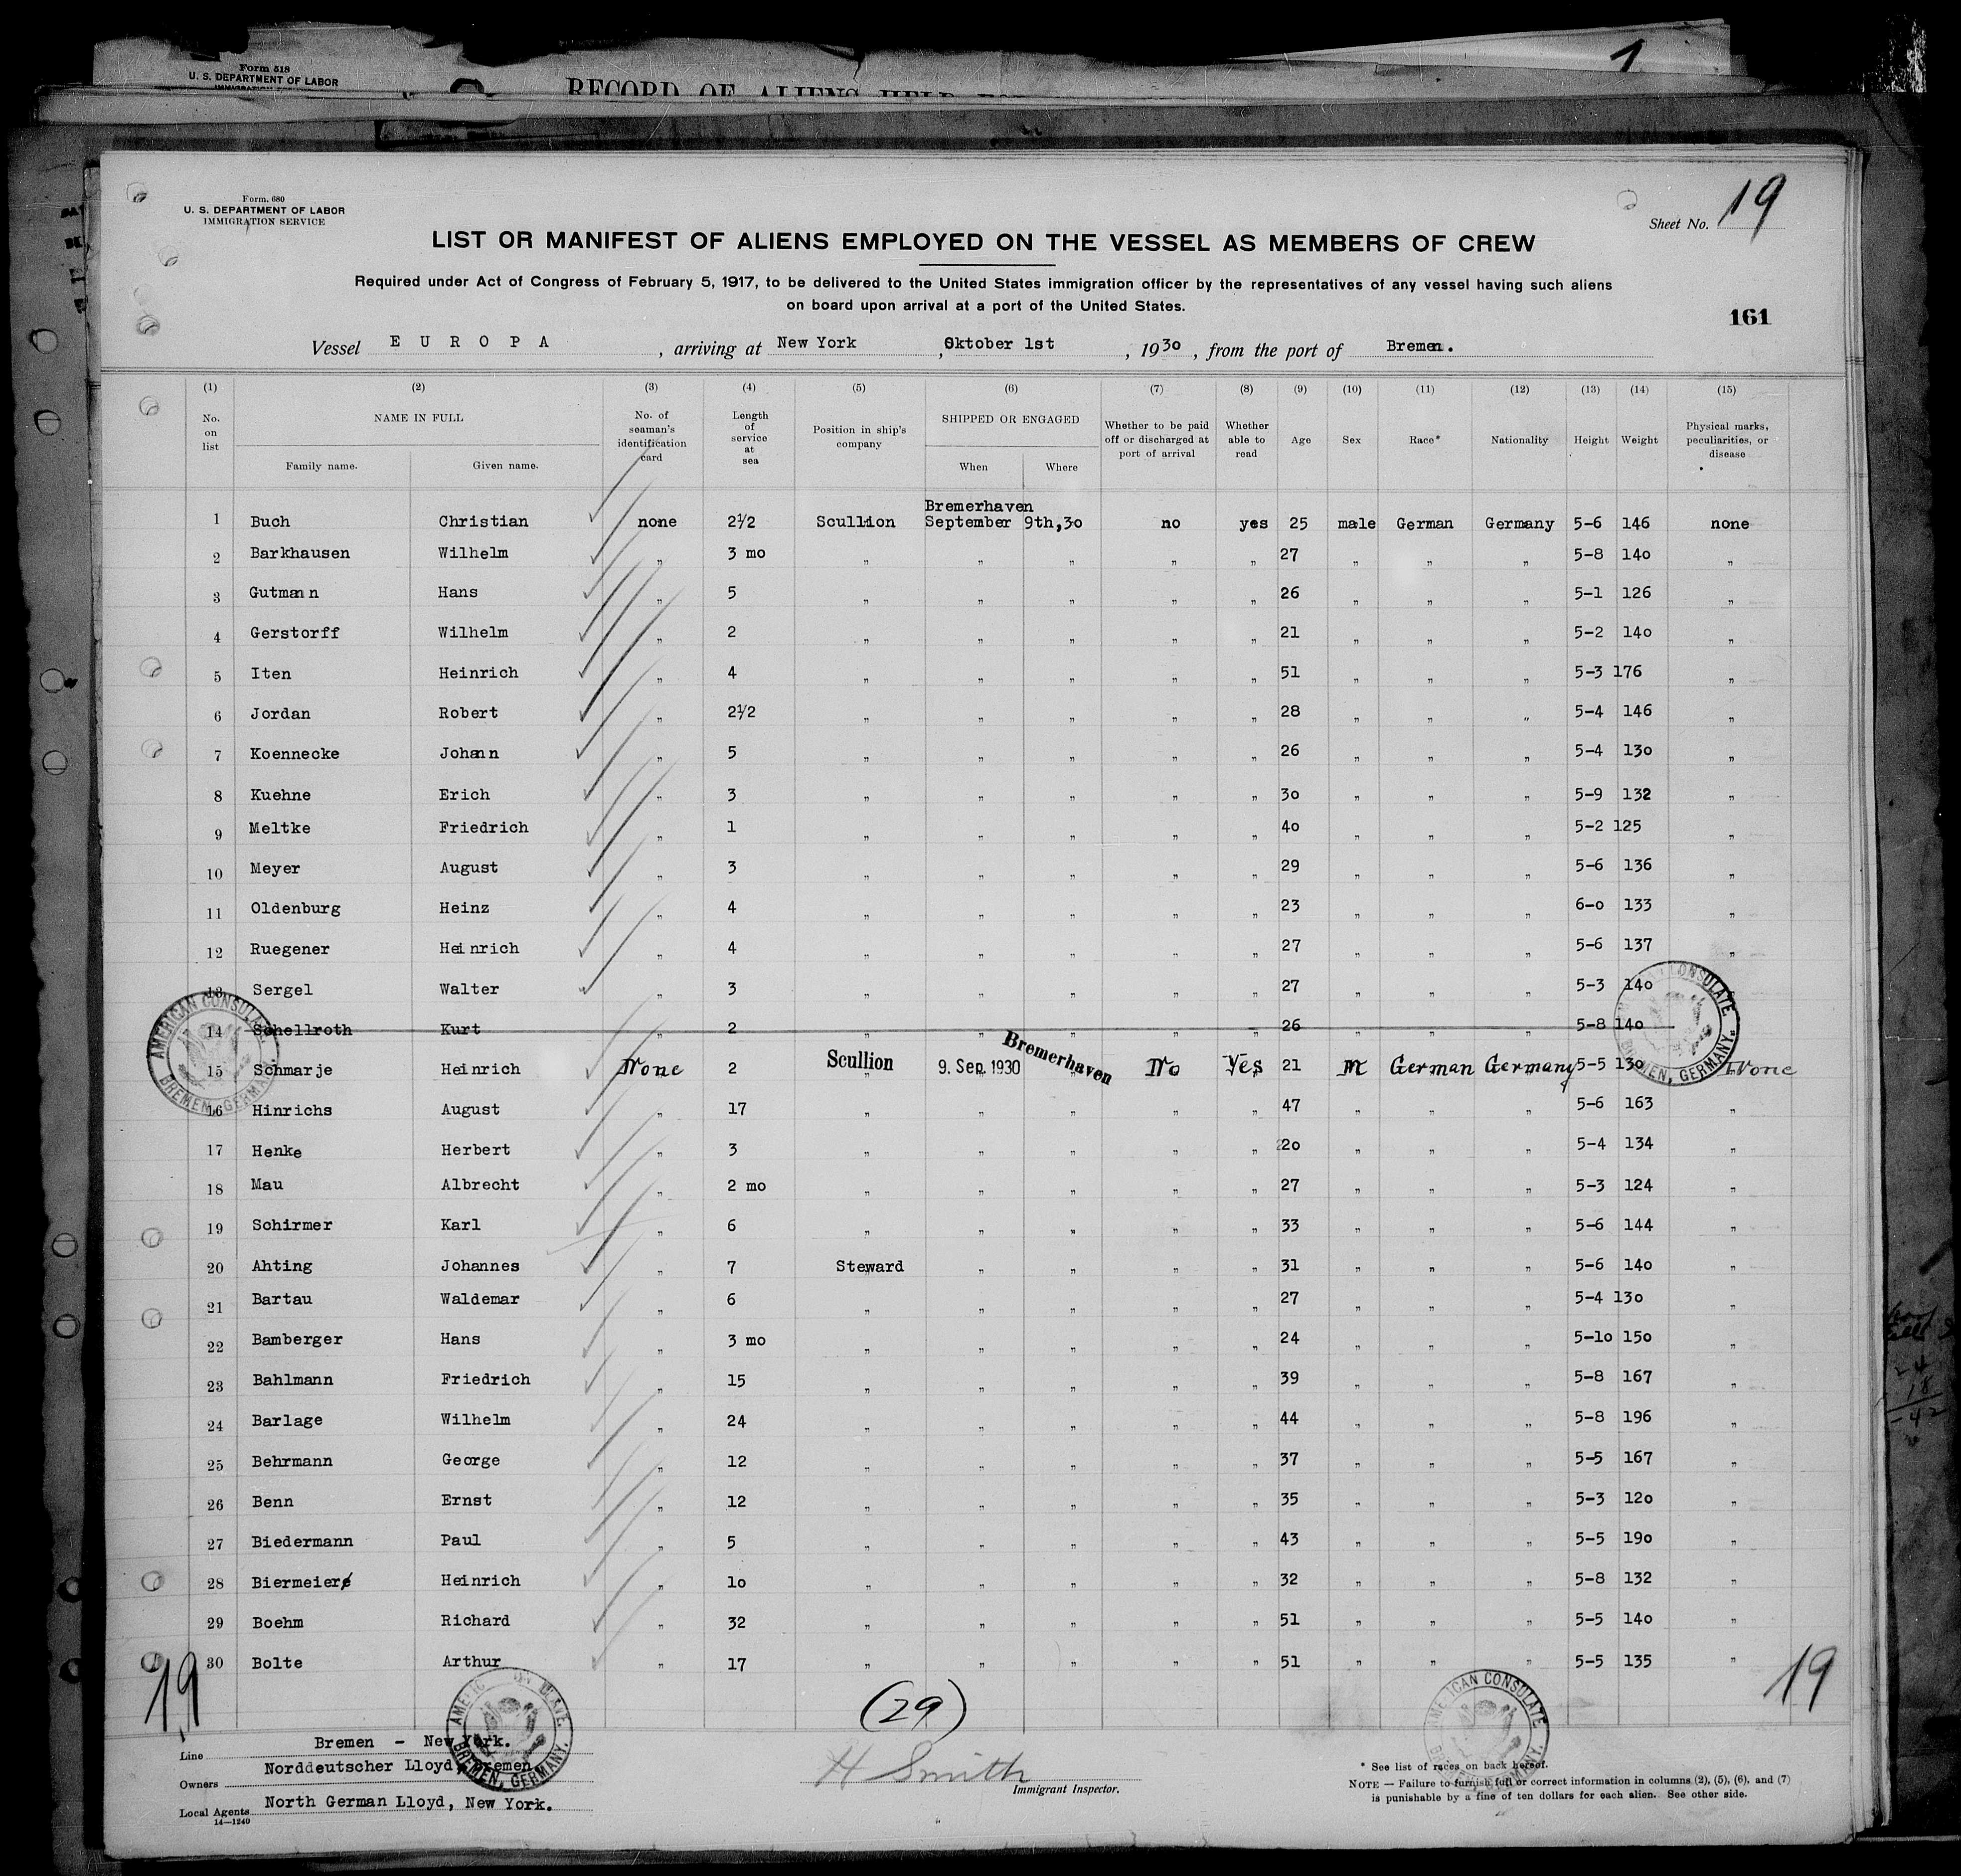 Form 518
U. S. DEPARTMENT OF LABOR
RECORD OF ALIENS HELD
1
Form. 680
U. S. DEPARTMENT OF LABOR
IMMIGRATION SERVICE
Sheet No. 19
LIST OR MANIFEST OF ALIENS EMPLOYED ON THE VESSEL AS MEMBERS OF CREW
Required under Act of Congress of February 5, 1917, to be delivered to the United States immigration officer by the representatives of any vessel having such aliens
on board upon arrival at a port of the United States.
161
Vessel E U R O P A , arriving at New York , Oktober 1st , 1930 , from the port of Bremen.
(1) (2) (3) (4) (5) (6) (7) (8) (9) (10) (11) (12) (13) (14) (15)
No. on list NAME IN FULL Family name. Given name. No. of seaman's identification card Length of service at sea Position in ship's company SHIPPED OR ENGAGED When Where Whether to be paid off or discharged at port of arrival Whether able to read Age Sex Race* Nationality Height Weight Physical marks, peculiarities, or disease
1 Buch Christian none 2½ Scullion Bremerhaven September 9th,30 no yes 25 male German Germany 5-6 146 none
2 Barkhausen Wilhelm „ 3 mo „ „ „ „ „ 27 „ „ „ 5-8 140 „
3 Gutmann Hans „ 5 „ „ „ „ „ 26 „ „ „ 5-1 126 „
4 Gerstorff Wilhelm „ 2 „ „ „ „ „ 21 „ „ „ 5-2 140 „
5 Iten Heinrich „ 4 „ „ „ „ „ 51 „ „ „ 5-3 176 „
6 Jordan Robert „ 2½ „ „ „ „ „ 28 „ „ „ 5-4 146 „
7 Koennecke Johann „ 5 „ „ „ „ „ 26 „ „ „ 5-4 130 „
8 Kuehne Erich „ 3 „ „ „ „ „ 30 „ „ „ 5-9 132 „
9 Meltke Friedrich „ 1 „ „ „ „ „ 40 „ „ „ 5-2 125 „
10 Meyer August „ 3 „ „ „ „ „ 29 „ „ „ 5-6 136 „
11 Oldenburg Heinz „ 4 „ „ „ „ „ 23 „ „ „ 6-0 133 „
12 Ruegener Heinrich „ 4 „ „ „ „ „ 27 „ „ „ 5-6 137 „
13 Sergel Walter „ 3 „ „ „ „ „ 27 „ „ „ 5-3 140
14 Schellroth Kurt „ 2 „ „ „ „ „ 26 „ „ „ 5-8 140
15 Schmarje Heinrich None 2 Scullion 9. Sep. 1930 Bremerhaven No Yes 21 M German Germany 5-5 130 None
16 Hinrichs August „ 17 „ „ „ „ „ 47 „ „ „ 5-6 163 „
17 Henke Herbert „ 3 „ „ „ „ „ 20 „ „ „ 5-4 134 „
18 Mau Albrecht „ 2 mo „ „ „ „ „ 27 „ „ „ 5-3 124 „
19 Schirmer Karl „ 6 „ „ „ „ „ 33 „ „ „ 5-6 144 „
20 Ahting Johannes „ 7 Steward „ „ „ „ 31 „ „ „ 5-6 140 „
21 Bartau Waldemar „ 6 „ „ „ „ „ 27 „ „ „ 5-4 130 „
22 Bamberger Hans „ 3 mo „ „ „ „ „ 24 „ „ „ 5-10 150 „
23 Bahlmann Friedrich „ 15 „ „ „ „ „ 39 „ „ „ 5-8 167 „
24 Barlage Wilhelm „ 24 „ „ „ „ „ 44 „ „ „ 5-8 196 „
25 Behrmann George „ 12 „ „ „ „ „ 37 „ „ „ 5-5 167 „
26 Benn Ernst „ 12 „ „ „ „ „ 35 „ „ „ 5-3 120 „
27 Biedermann Paul „ 5 „ „ „ „ „ 43 „ „ „ 5-5 190 „
28 Biermeier Heinrich „ 10 „ „ „ „ „ 32 „ „ „ 5-8 132 „
29 Boehm Richard „ 32 „ „ „ „ „ 51 „ „ „ 5-5 140 „
30 Bolte Arthur „ 17 „ „ „ „ „ 51 „ „ „ 5-5 135 „
AMERICAN CONSULATE. BREMEN, GERMANY.
CONSULATE. BREMEN, GERMANY.
19 (29) 19
AMERICAN CONSULATE. BREMEN, GERMANY.
AMERICAN CONSULATE
Line Bremen - New York.
Owners Norddeutscher Lloyd, Bremen
Local Agents North German Lloyd, New York.
14—1240
H Smith
Immigrant Inspector.
* See list of races on back hereof.
NOTE — Failure to furnish full or correct information in columns (2), (5), (6), and (7)
is punishable by a fine of ten dollars for each alien. See other side.